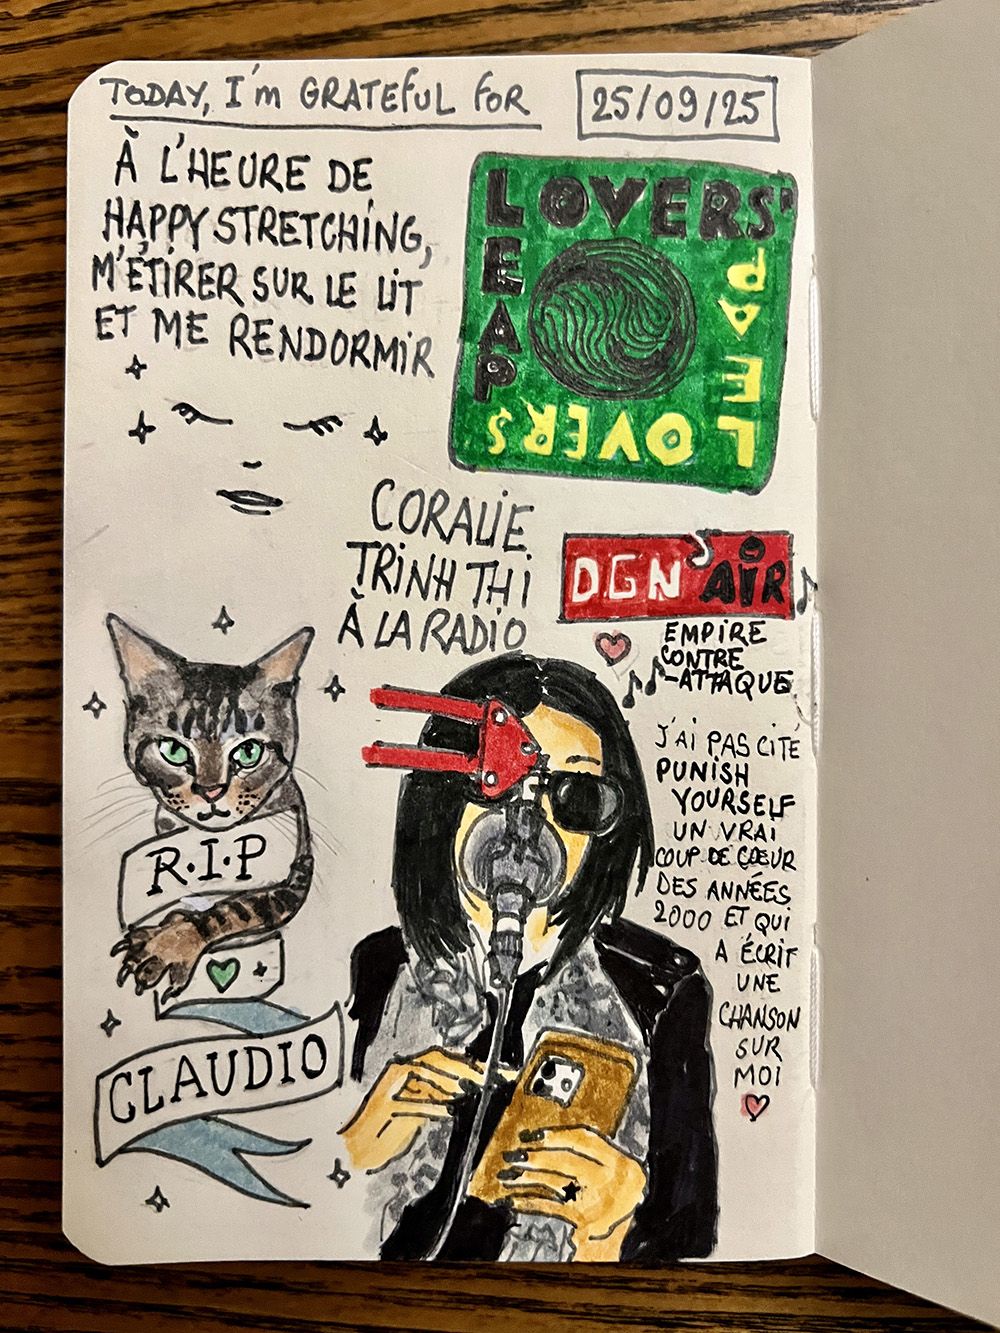 TODAY, I'm GRATEFUL FOR
25/09/25
À L'HEURE DE
HAPPY STRETCHING,
M'ÉTIRER SUR LE LIT
ET ME RENDORMIR
LOVERS'
LEAP
LOVERS
LEAP
CORALIE
TRINH THI
À LA RADIO
DGN'S AIR
EMPIRE
CONTRE
-ATTAQUE
J'AI PAS CITÉ
PUNISH
YOURSELF
UN VRAI
COUP DE CŒUR
DES ANNÉES
2000 ET QUI
A ÉCRIT
UNE
CHANSON
SUR
MOI
R.I.P
CLAUDIO